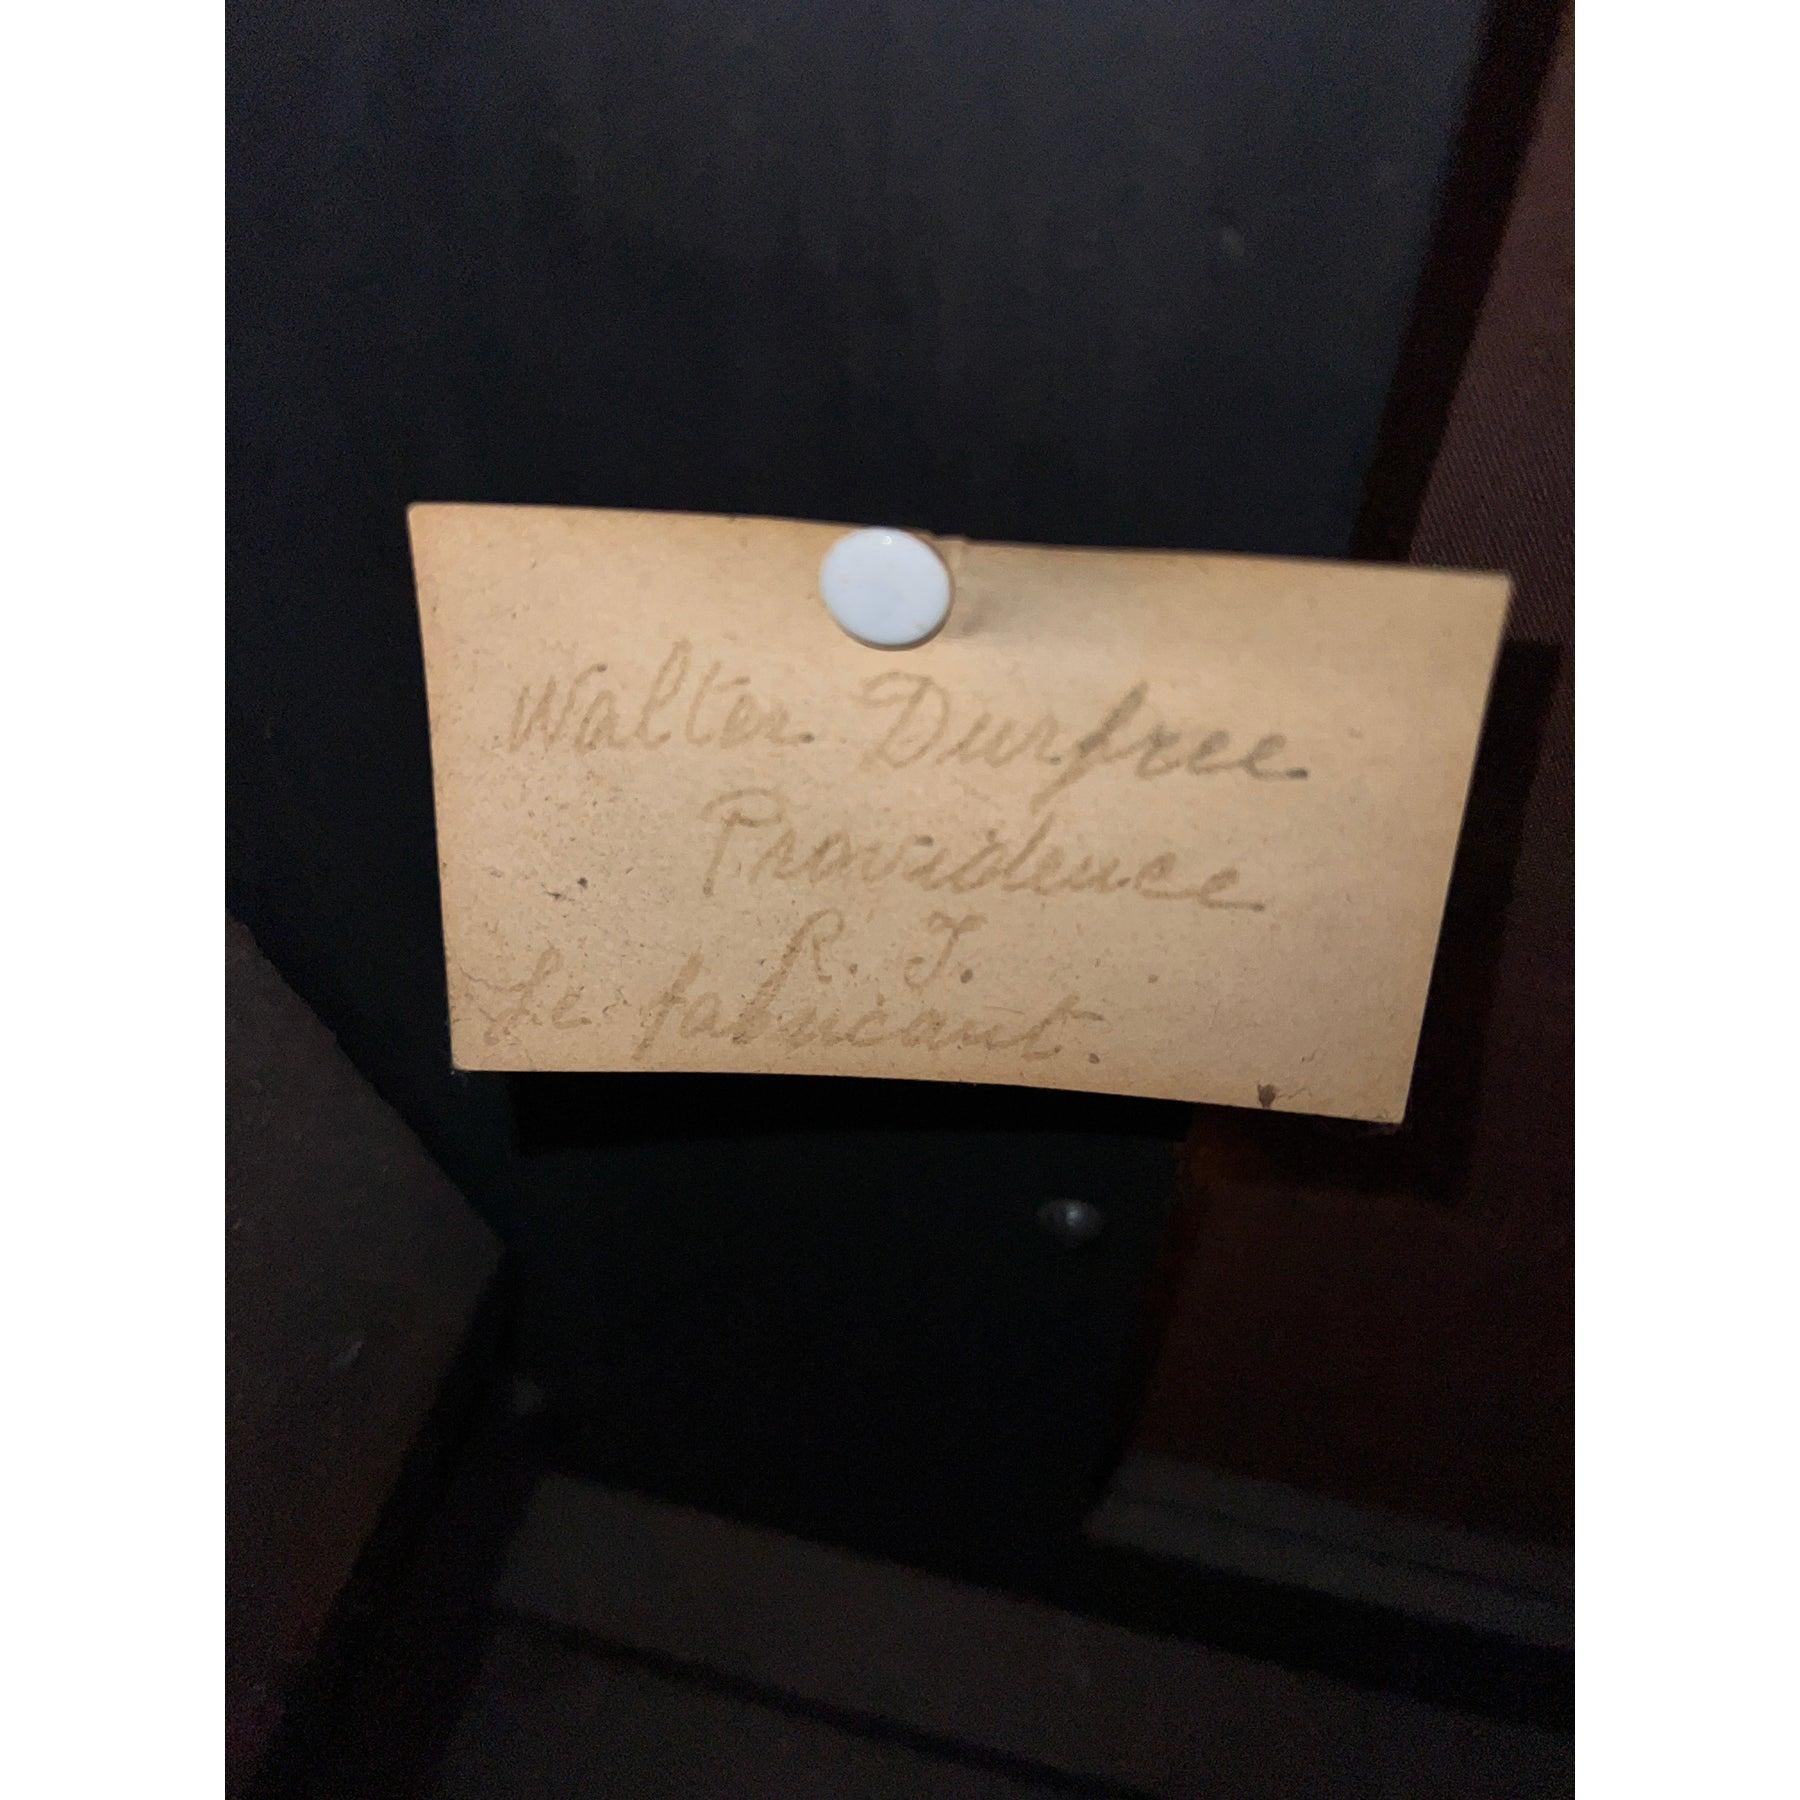 Walter Durfree
Providence
R. I.
Le fabricant.